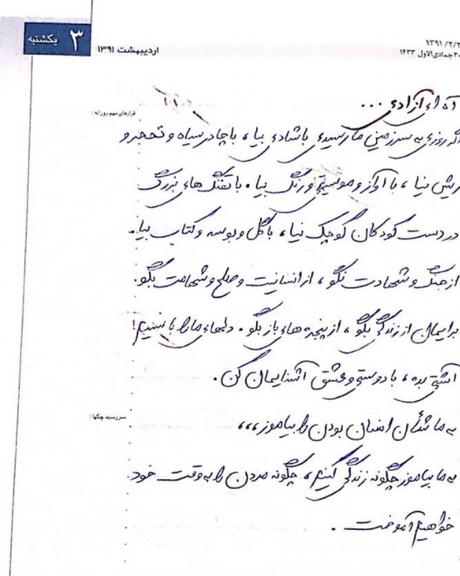 ۳ یکشنبه
اردیبهشت ۱۳۹۱
۱۳۹۱/۲/۳
جمادی‌الاول ۱۴۳۳
قرارهای مهم روزانه:
آه ای آزادی ...
اگر روزی به سرزمین ما رسیدی با شادی بیا، با چادر سیاه و تحجر و
ریش نیا، با آواز و موسیقی و رنگ بیا. با تفنگ های بزرگ
در دست کودکان کوچک نیا، با گل و بوسه و کتاب بیا.
از جنگ و شهادت نگو، از انسانیت و صلح و شهامت بگو.
برایمان از زندگی بگو، از پنجره های باز بگو. دلهای ما را با نسیم
آشتی بده، با دوستی و عشق آشنایمان کن.
سررسید چکها:
به ما شأن انسان بودن را بیاموز،،،
به ما بیاموز چگونه زندگی کنیم، چگونه مردن را به وقت خود
خواهیم آموخت.